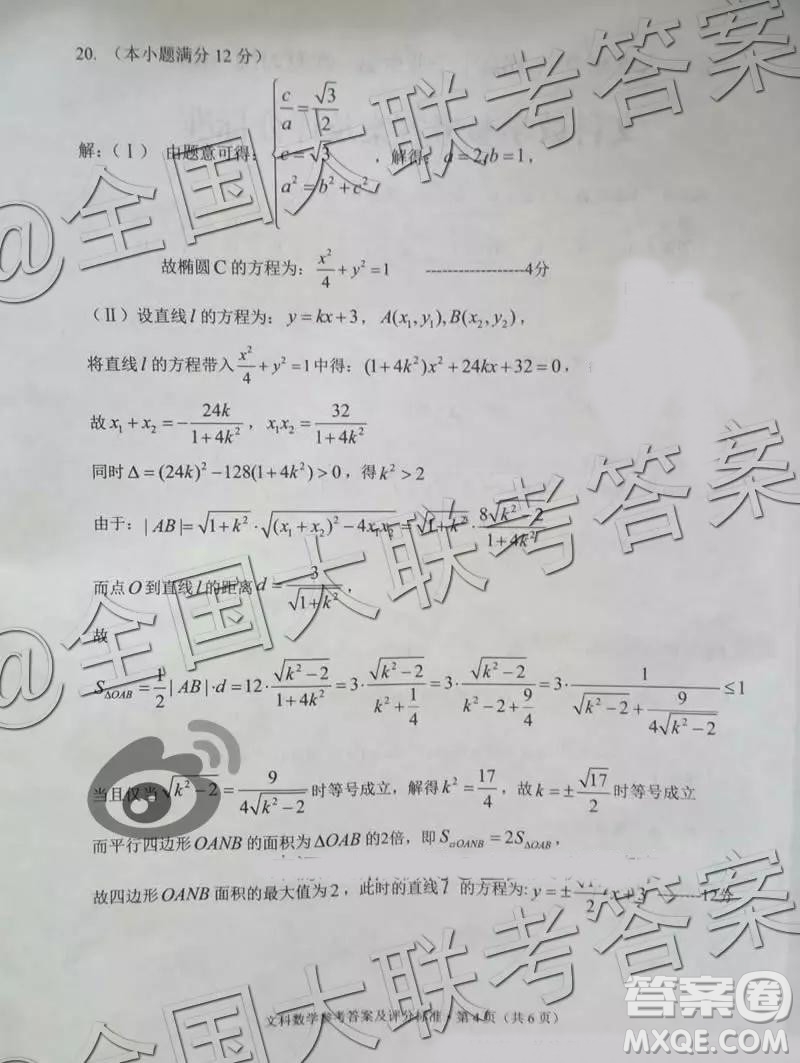 20. （本小题满分12分）
解:（Ⅰ） 由题意可得: { c/a = √3/2 , c = √3 , a² = b² + c² , 解得: a = 2, b = 1 ,
故椭圆C的方程为: x²/4 + y² = 1 ------------------4分
（Ⅱ）设直线 l 的方程为: y = kx + 3 , A(x₁, y₁), B(x₂, y₂) ,
将直线 l 的方程带入 x²/4 + y² = 1 中得: (1+4k²)x² + 24kx + 32 = 0 ,
故 x₁ + x₂ = −24k/(1+4k²) , x₁x₂ = 32/(1+4k²)
同时 Δ = (24k)² − 128(1+4k²) > 0 , 得 k² > 2
由于: |AB| = √(1+k²) · √((x₁+x₂)² − 4x₁x₂) = √(1+k²) · 8√(k²−2)/(1+4k²)
而点 O 到直线 l 的距离 d = 3/√(1+k²) ,
故
S△OAB = 1/2 |AB|·d = 12 · √(k²−2)/(1+4k²) = 3 · √(k²−2)/(k² + 1/4) = 3 · √(k²−2)/(k²−2 + 9/4) = 3 · 1/(√(k²−2) + 9/(4√(k²−2))) ≤ 1
当且仅当 √(k²−2) = 9/(4√(k²−2)) 时等号成立，解得 k² = 17/4 , 故 k = ±√17/2 时等号成立
而平行四边形 OANB 的面积为 ΔOAB 的2倍，即 S▱OANB = 2S△OAB ,
故四边形 OANB 面积的最大值为 2，此时的直线 l 的方程为: y = ± √17/2 x + 3 -------12分
文科数学参考答案及评分标准·第4页（共6页）
@全国大联考答案
@全国大联考答案
答案圈
MXQE.COM